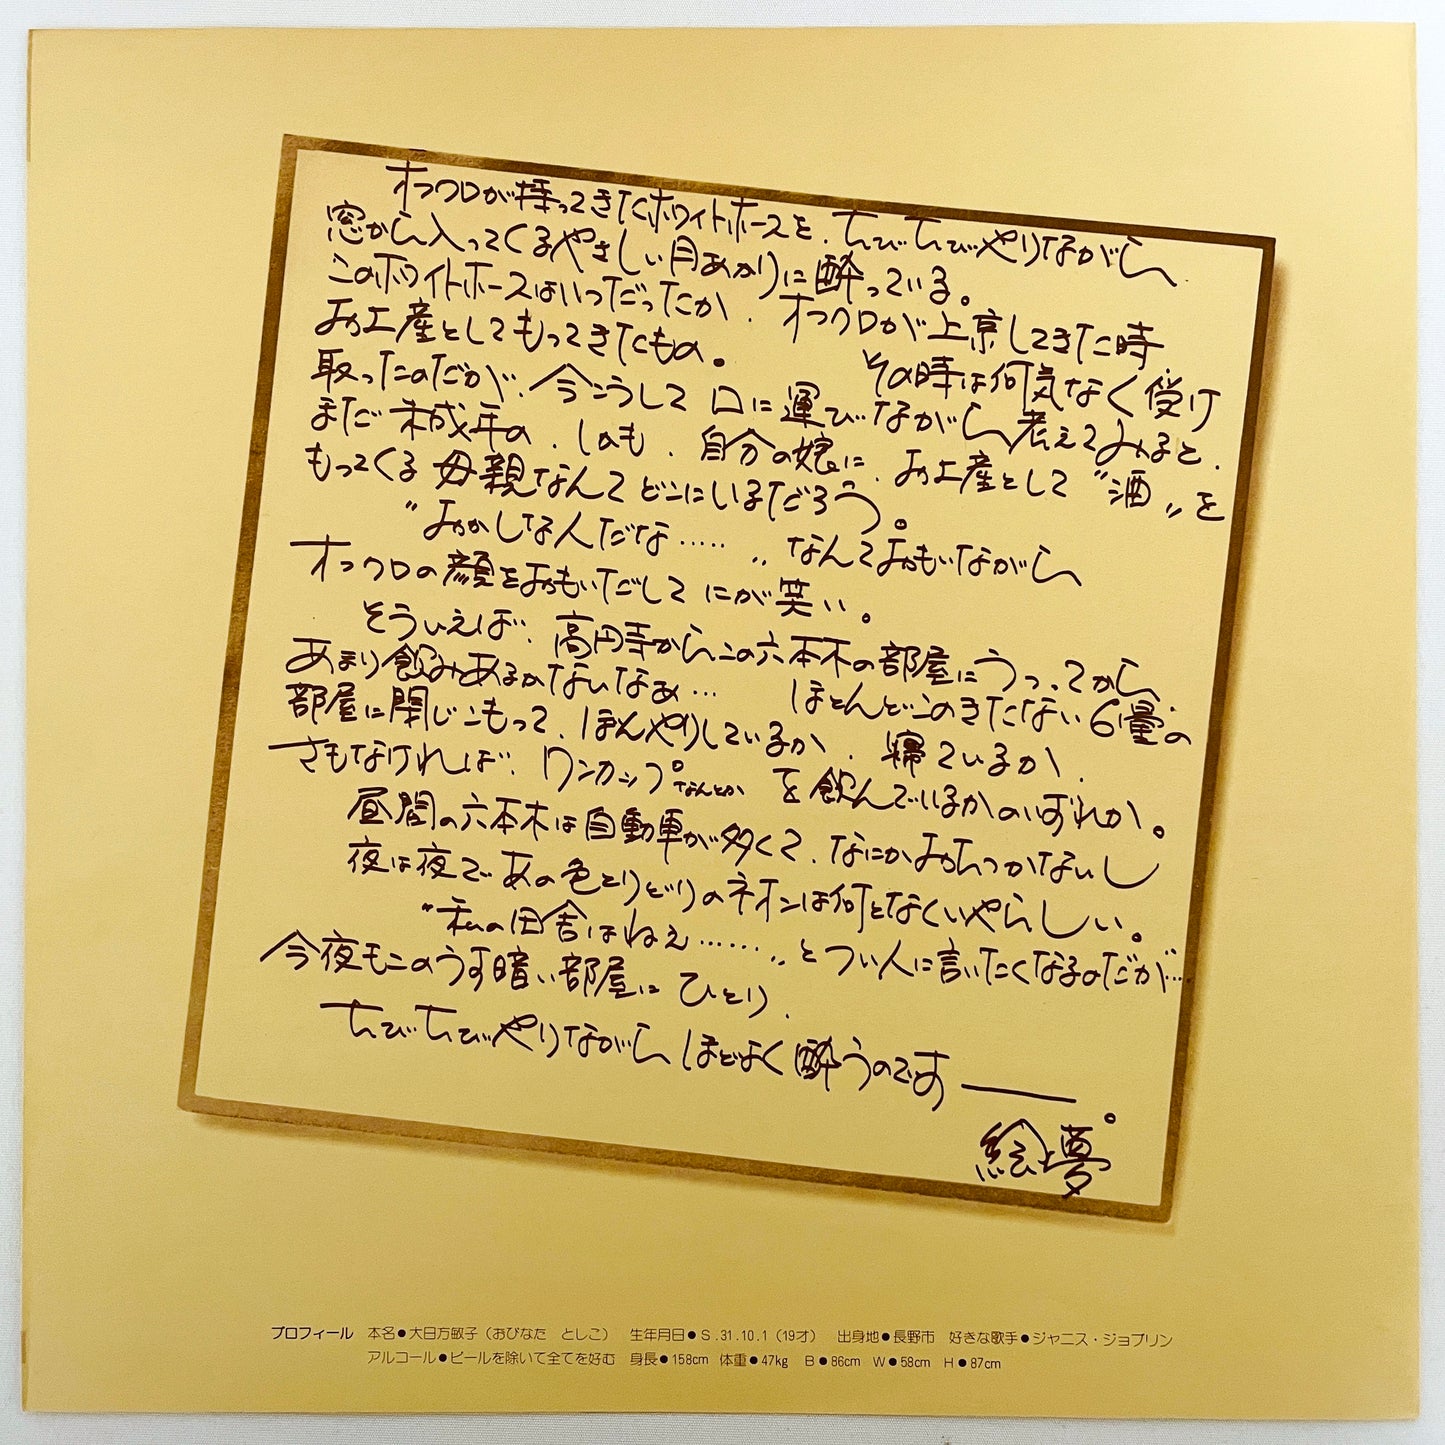 オフクロが持ってきたホワイトホースを、ちびちびやりながら
窓から入ってくるやさしい月あかりに酔っている。
このホワイトホースはいつだったか、オフクロが上京してきた時
お土産としてもってきたもの。その時は何気なく受け
取ったのだが、今こうして口に運びながら考えてみると、
まだ未成年の、しかも、自分の娘に、お土産として〝酒〟を
もってくる母親なんてどこにいるだろう。
〝おかしな人だな……〟なんておもいながら
オフクロの顔をおもいだしてにが笑い。
そういえば、高円寺からこの六本木の部屋にうつってから、
あまり飲みあるかないなぁ… ほとんどこのきたない6畳の
部屋に閉じこもって、ぼんやりしているか、寝ているか、
さもなければ、ワンカップなんとかを飲んでいるかのいずれか。
昼間の六本木は自動車が多くて、なにかおちつかないし
夜は夜であの色とりどりのネオンは何となくいやらしい。
〝私の田舎はねぇ……〟とつい人に言いたくなるのだが…
今夜もこのうす暗い部屋にひとり、
ちびちびやりながらほどよく酔うのです――。
絵夢
プロフィール 本名●大日方敏子（おびなた としこ） 生年月日●S.31.10.1（19才） 出身地●長野市 好きな歌手●ジャニス・ジョプリン
アルコール●ビールを除いて全てを好む 身長●158cm 体重●47kg B●86cm W●58cm H●87cm